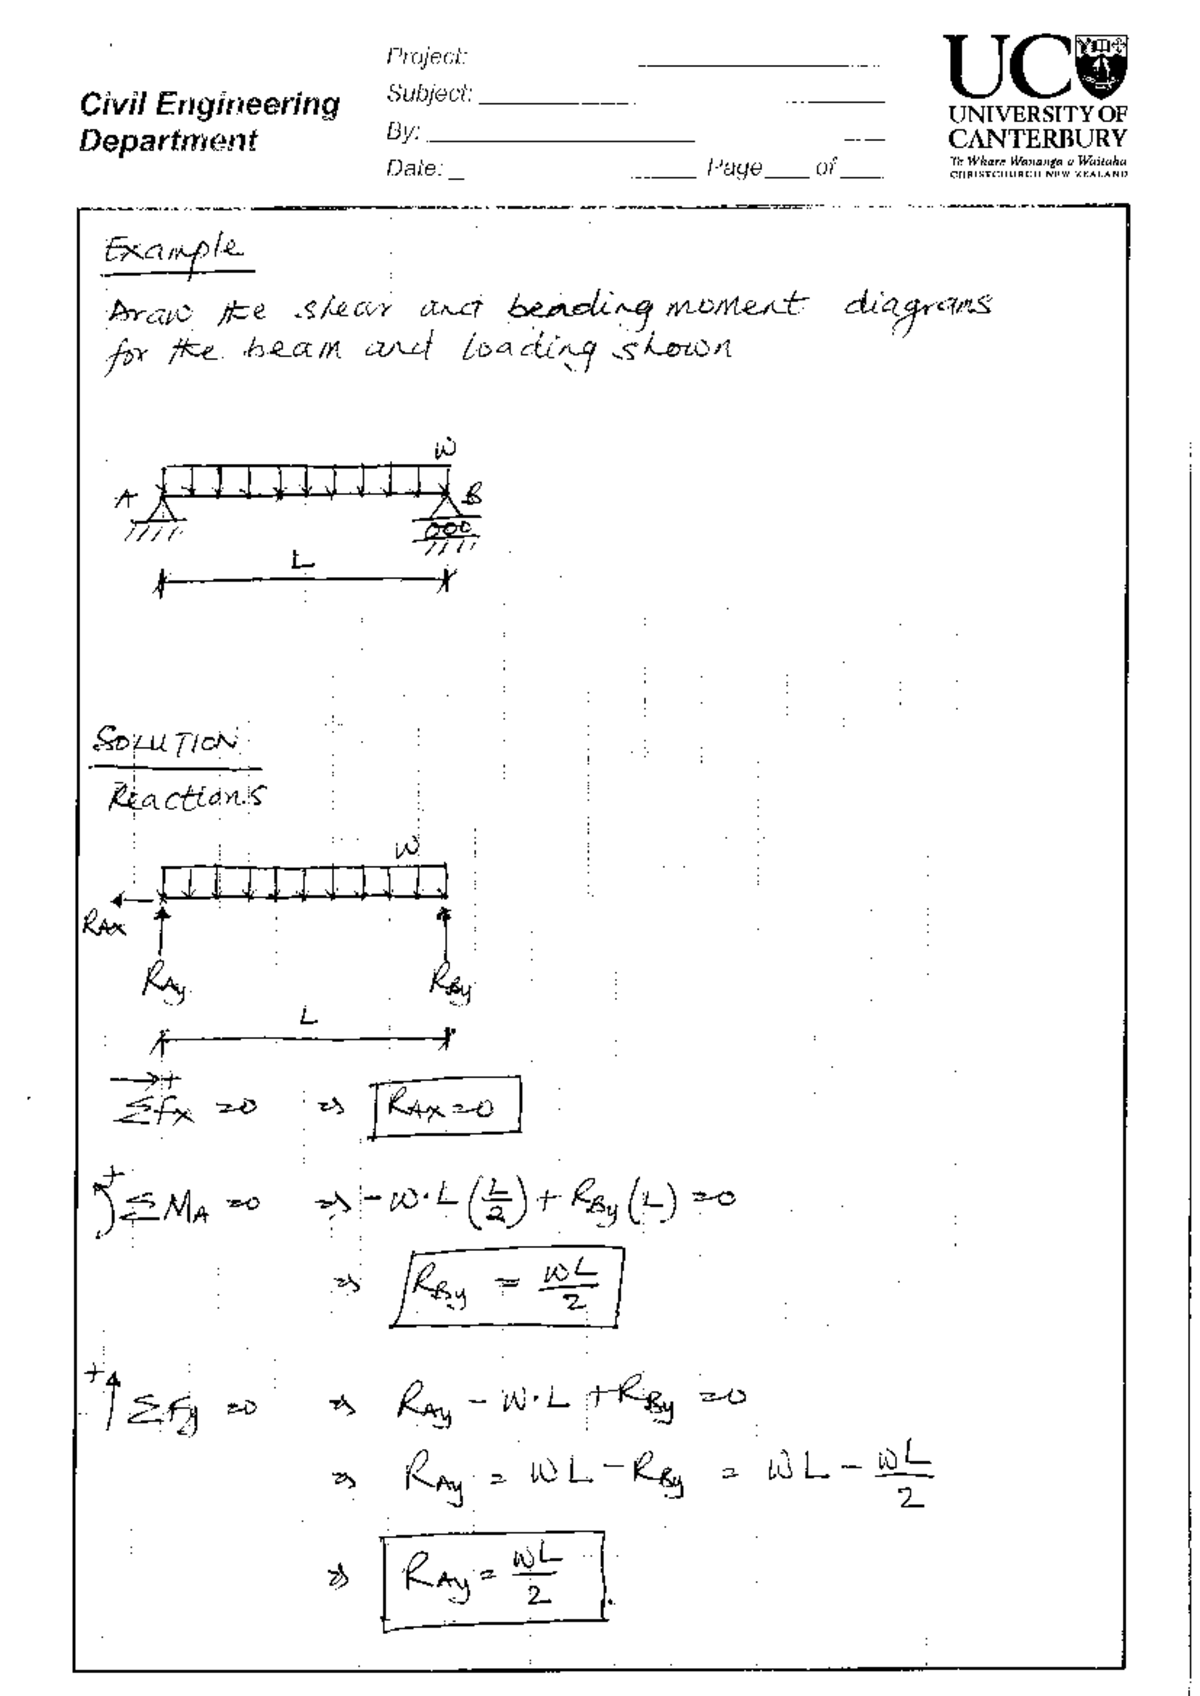 Project:
Civil Engineering
Department
Subject:
By:
Date:
Page of
UC
UNIVERSITY OF
CANTERBURY
Te Whare Wananga o Waitaha
CHRISTCHURCH NEW ZEALAND
Example
Draw the shear and bending moment diagrams
for the beam and loading shown
W
A B
L
SOLUTION
Reactions
W
RAx
RAy RBy
L
→+
ΣFx = 0 ⇒ RAx = 0
+
ΣMA = 0 ⇒ -W·L (L/2) + RBy (L) = 0
⇒ RBy = WL/2
+↑ ΣFy = 0 ⇒ RAy - W·L + RBy = 0
⇒ RAy = WL - RBy = WL - WL/2
⇒ RAy = WL/2.